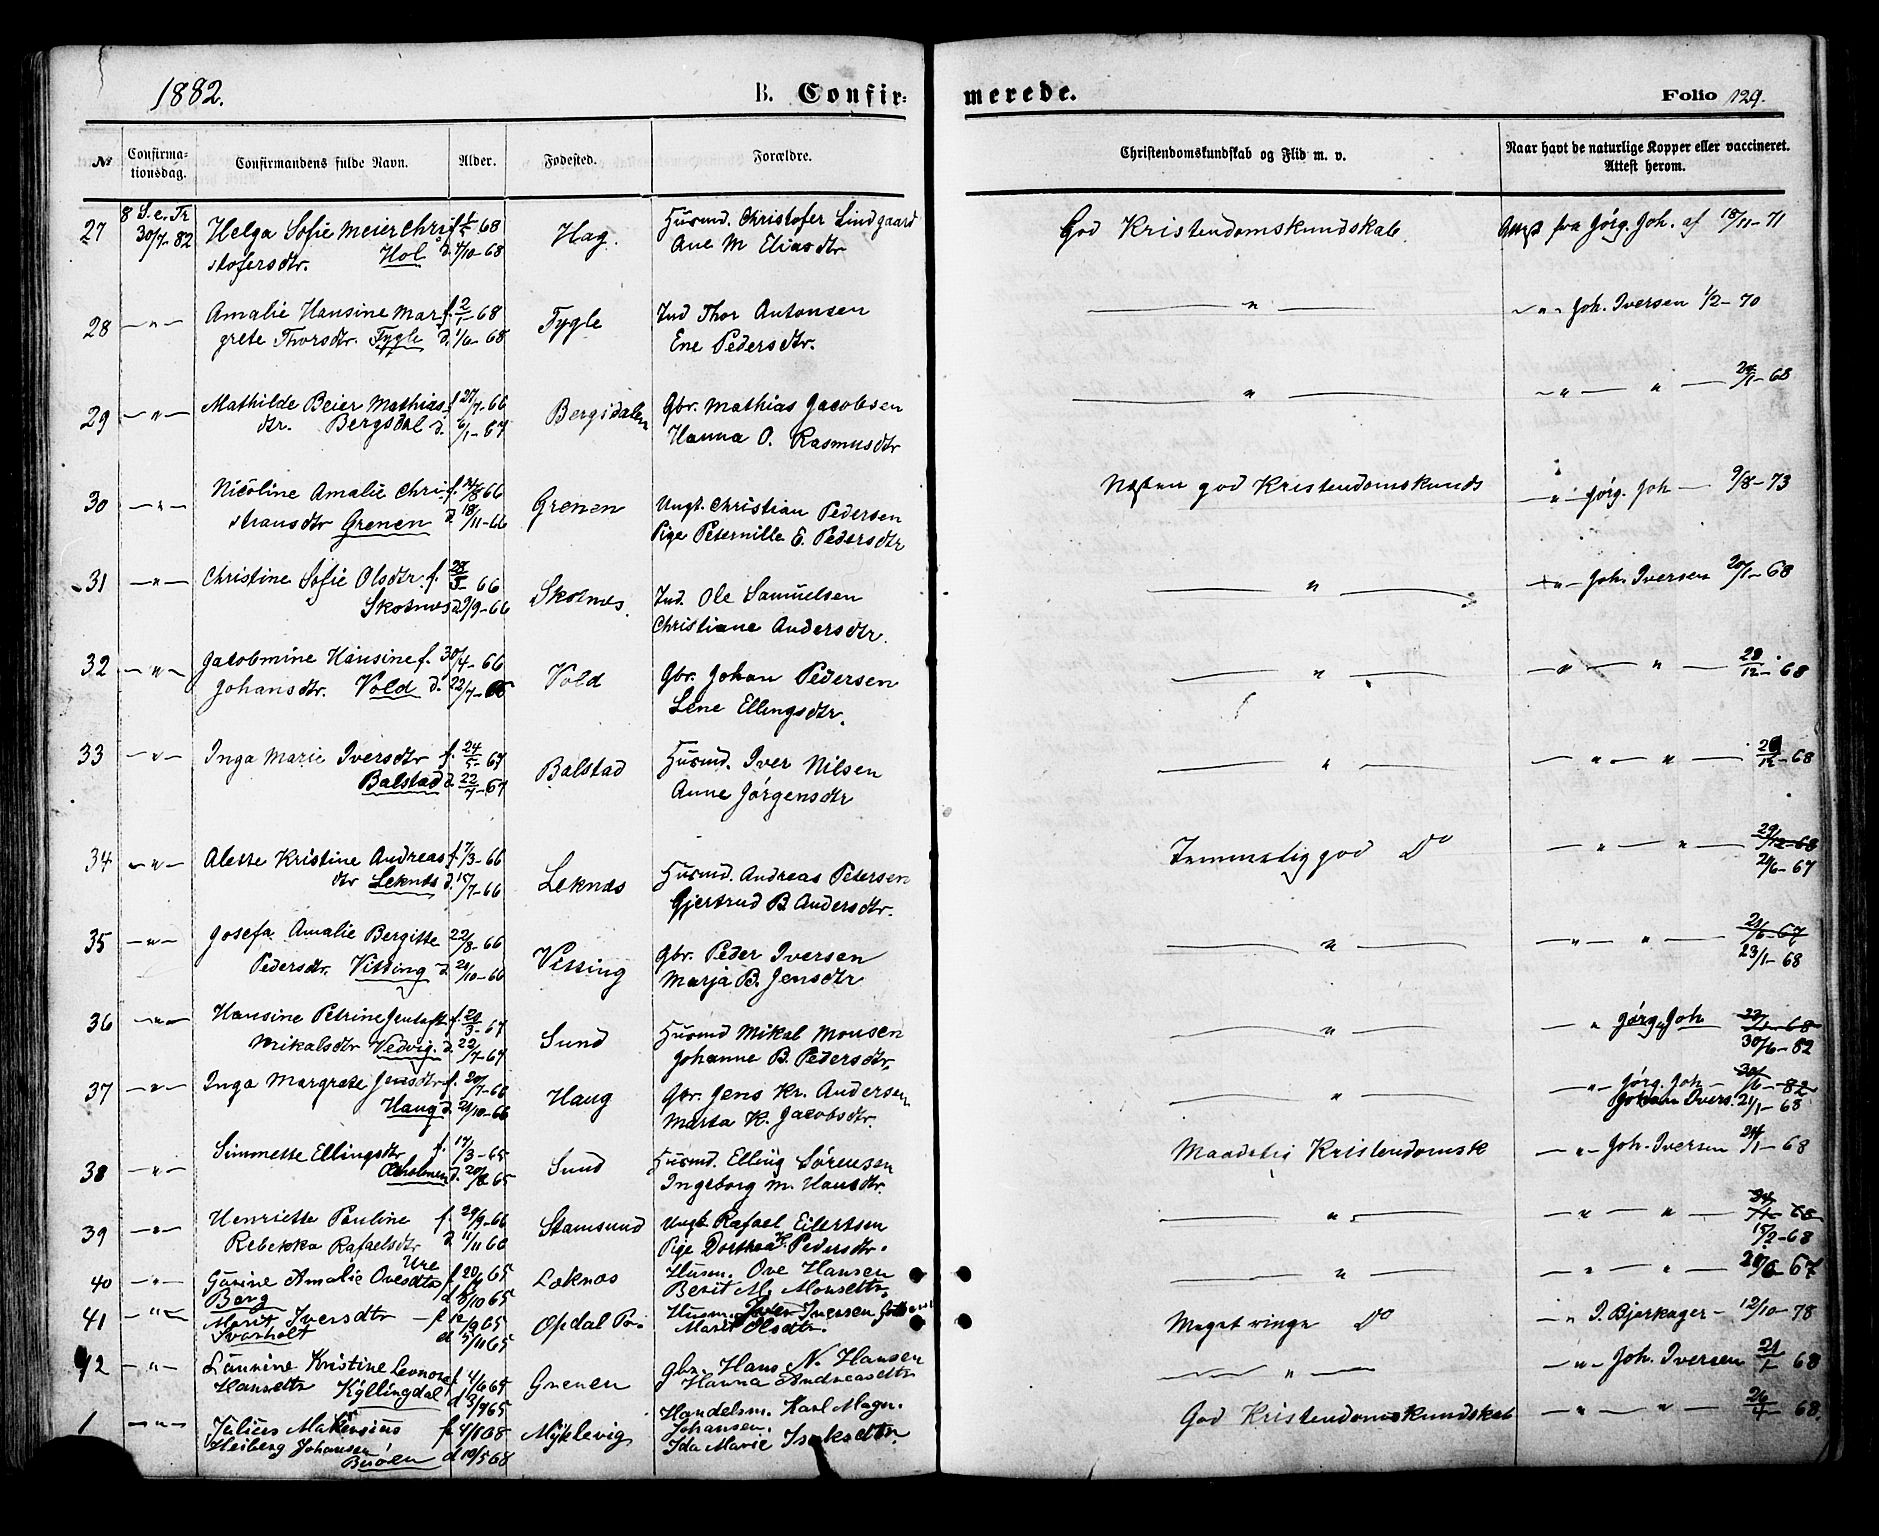 1882.
B. Confir-
merede.
Folio 129.
№
Confirma-
tionsdag.
Confirmandens fulde Navn.
Alder.
Fødested.
Forældre.
Christendomskundskab og Flid m. v.
Naar havt de naturlige Kopper eller vaccineret.
Attest herom.
8 S. e. Tr
27 30/7-82 Helga Sofie Meier Chri f. 68 Hag. Husmd. Christofer Lindgaard God Kristendomskundskab. fra Jørg. Joh. af 18/11-71
stofersdtr. Hol d. 4/10-68 Ane M Eliasdtr
28 —"— Amalie Hansine Mar f. 2/1-68 Tygle Ind Thor Antonsen —"— —"— Joh. Iversen 1/2-70
grete Thorsdtr. Tygle d. 1/6-68 Ene Pedersdtr.
29 —"— Mathilde Beier Mathias f. 27/7-66 Bergsdalen Gbr. Mathias Jacobsen —"— —"— " — 68
dtr. Bergsdal d. 6/1-67 Hanna O. Rasmusdtr
30 —"— Nicoline Amalie Chri f. 66 Grenen Ungk. Christian Pedersen Næsten god Kristendomskunds —"— Jørg. Joh — 9/8-73
stiansdtr Grenen d. 18/11-66 Pige Peternille E. Pedersdtr
31 —"— Christine Sofie Olsdtr. f. 28/5-66 Skotnes. Ind. Ole Samuelsen —"— —"— Joh. Iversen 20/1-68
Skotnes d. 9/9-66 Christiane Andersdtr.
32 —"— Jacobmine Hansine f. 30/4-66 Vold Gbr. Johan Pedersen —"— —"— " — 28/12-68
Johansdtr. Vold d. 22/7-66 Lene Ellingsdtr.
33 —"— Inga Marie Iversdtr f. 24/5-67 Balstad Husmd. Iver Nilsen —"— —"— " — 12-68
Balstad d. 22/7-67 Anne Jørgensdtr
34 —"— Alette Kristine Andreas f. 7/3-66 Leknes Husmd. Andreas Petersen Temmelig god Do —"— " — 29/12-68
dtr Leknes d. 15/7-66 Gjertrud B. Andersdtr. 2/6-67
35 —"— Josefa Amalie Bergitte 22/8-66 Vitting Gbr. Peder Iversen —"— —"— " — 2/6-67
Pedersdtr. Vitting d. 21/10-66 Marja B. Jensdtr 23/1-68
36 —"— Hansine Petrine Jentoft f. 20/3-67 Sund Husmd Mikal Monsen —"— — " Jørg. Joh -68
Mikalsdtr Vedvig. d. 22/7-67 Johanne B. Pedersdtr. 30/6-82
37 —"— Inga Margrete Jensdtr f. 20/7-66 Haug Gbr. Jens Kr. Andersen —"— —"— Jørg. Joh — 30/6-82
Haug d. 21/10-66 Marta K. Jacobsdtr. Johan Ivers. 21/1-68
38 —"— Simmette Ellingsdtr f. 17/3-65 Sund Husmd. Elling Sørensen Maadelig Kristendomsk —"— Joh. Iversen 24/1-68
d. 20/8-65 Ingeborg M. Hansdtr.
39 —"— Henriette Pauline f. 29/9-66 Stamsund Ungk. Rafael Eilertsen —"— —"— " — 68
Rebekka Rafaelsdtr d. 11/11 66 Pige Dorthea K. Pedersdtr. 15/2-68
Ure
40 —"— Gurine Amalie Ovesdtr f. 65 Leknæs Husm. Ove Hansen —"— —"— " — 67
Berg d 8/10 65 Berit M. Monsdtr.
41 —"— Marit Iversdtr — f 65 Opdal Husm. Iver Iversen Meget ringe Do —"— I. Bjerkager — 12/10-78
Ivarholt d 5/11 65 Marit Olsdtr.
42 —"— Laurine Kristine Leonora f 4/6 65 Grenen Gbr. Hans N. Hansen —"— —"— Joh. Iversen 21/1 68
Hansdtr Kyllingdal d 65 Hanna Andreasdtr
1 —"— Julius Makensius f 4/1 68 Myklevig Handelsm. Karl Magn. God Kristendomskundskab —"— " — 26/4 68
Heiberg Johansen Johansen.
Buøen d 10/5 68 Ida Marie Isaksdtr